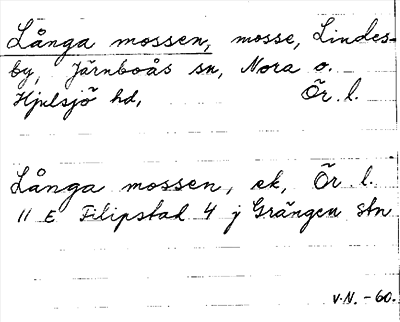 Långa mossen, mosse, Lindes-
by, Järnboås sn, Nora o.
Hjulsjö hd, Ör. l.
Långa mossen, ek, Ör l.
11 E Filipstad 4 j Grängen stn
V.N. -60.